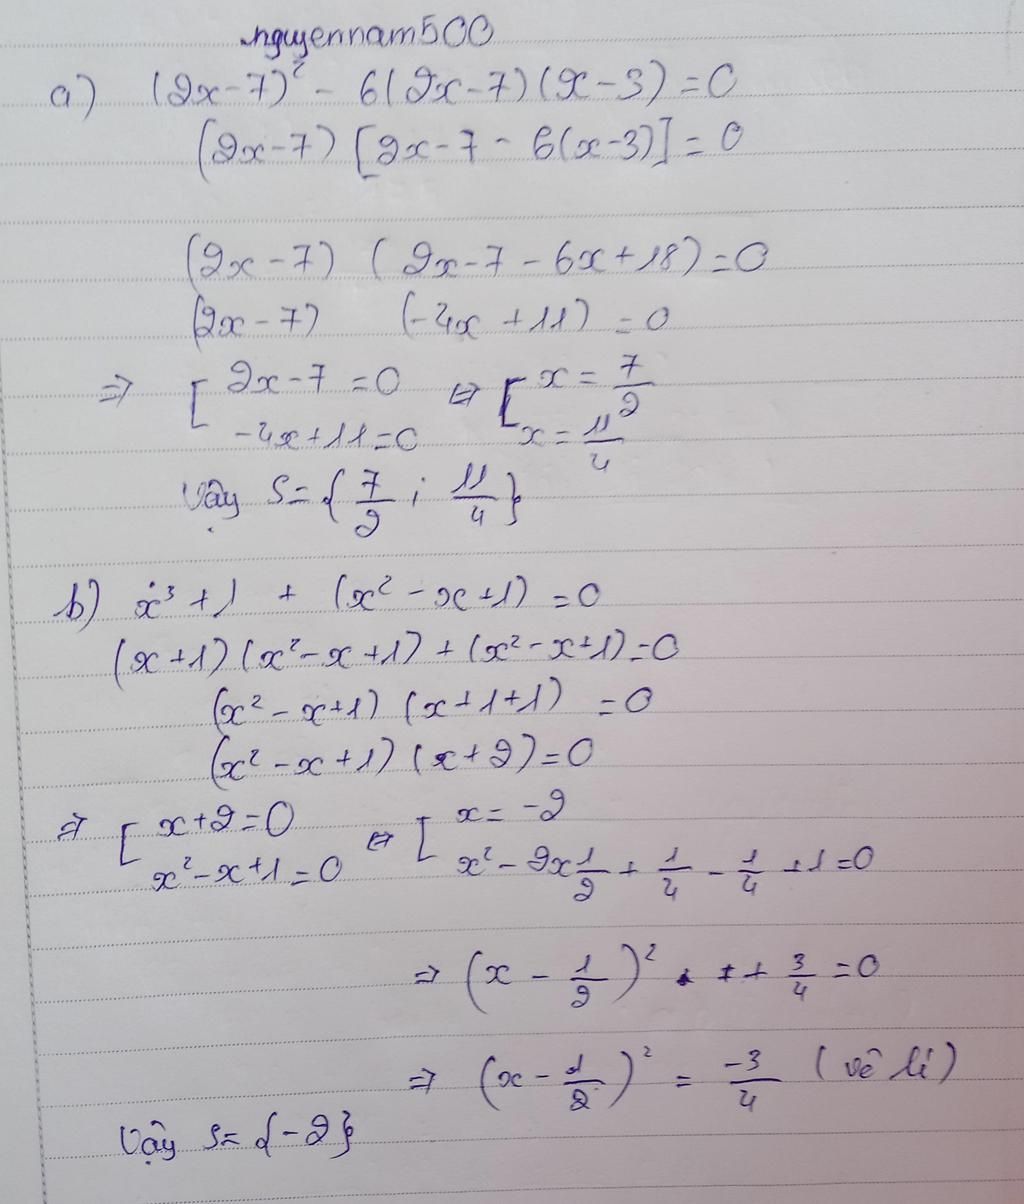 nguyennam500
a) (2x-7)² - 6(2x-7)(x-3)=0
(2x-7)[2x-7-6(x-3)]=0
(2x-7) (2x-7-6x+18)=0
(2x-7) (-4x+11)=0
⇒ [ 2x-7=0 ⇔ [ x = 7/2
-4x+11=0 x = 11/4
Vậy S={7/2; 11/4}
b) x³+1 + (x²-x+1)=0
(x+1)(x²-x+1)+(x²-x+1)=0
(x²-x+1)(x+1+1)=0
(x²-x+1)(x+2)=0
⇒ [ x+2=0 ⇔ [ x=-2
x²-x+1=0 x²-2x 1/2 + 1/4 - 1/4 +1=0
⇒ (x - 1/2)² + 3/4 = 0
⇒ (x - 1/2)² = -3/4 (vô lí)
Vậy S={-2}